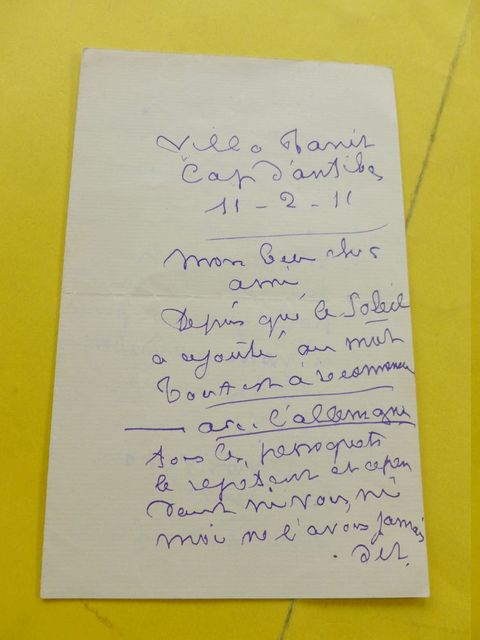 Villa Tanit
Cap d'antibes
11 - 2 - 11
Mon bien cher
ami
Depuis que le Soleil
a ajouté au mot
tout est à recommencer
— avec l'allemagne
tous les perroquets
le repetent et cepen
dant ni vous, ni
moi ne l'avons jamais
dit.